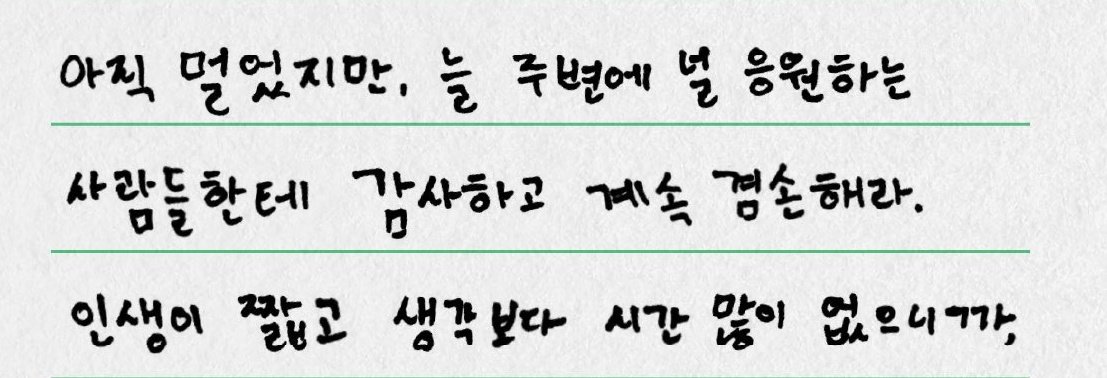 아직 멀었지만, 늘 주변에 널 응원하는
사람들한테 감사하고 계속 겸손해라.
인생이 짧고 생각보다 시간 많이 없으니까,